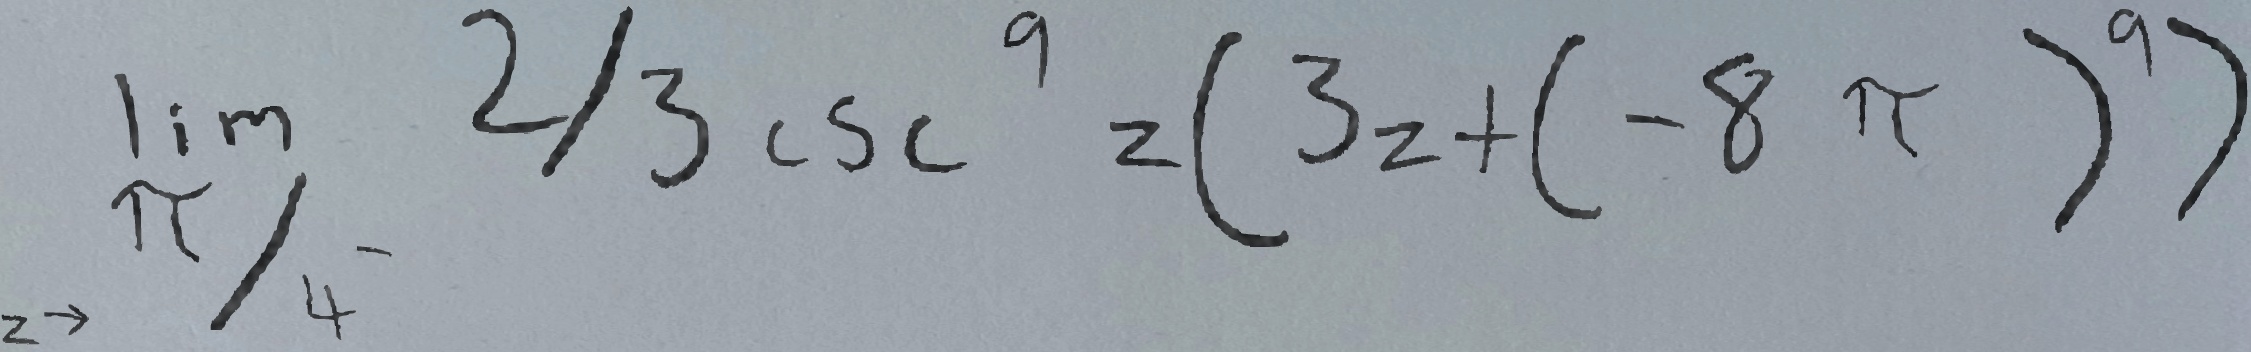 \lim_{z \to \pi/4^-} 2/3 \csc^9 z(3z+(-8\pi)^9)